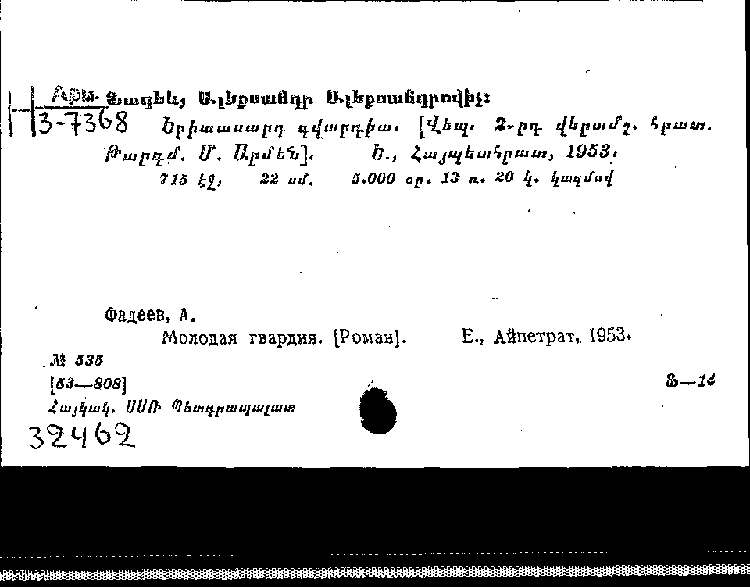 Арм. Ֆադեև, Ալեքսանդր Ալեքսանդրովիչ:
3-7368 Երիտասարդ գվարդիա. [Վեպ. 2-րդ վերամշ. հրատ.
Թարգմ. Մ. Արմեն]. Ե., Հայպետհրատ, 1953.
715 էջ, 22 սմ. 5.000 օր. 13 ռ. 20 կ. կազմով
Фадеев, А.
Молодая гвардия. [Роман]. Е., Айпетрат, 1953.
№ 535
[53—808] Ֆ—14
Հայկակ. ՍՍՌ Պետգրապալատ
32462